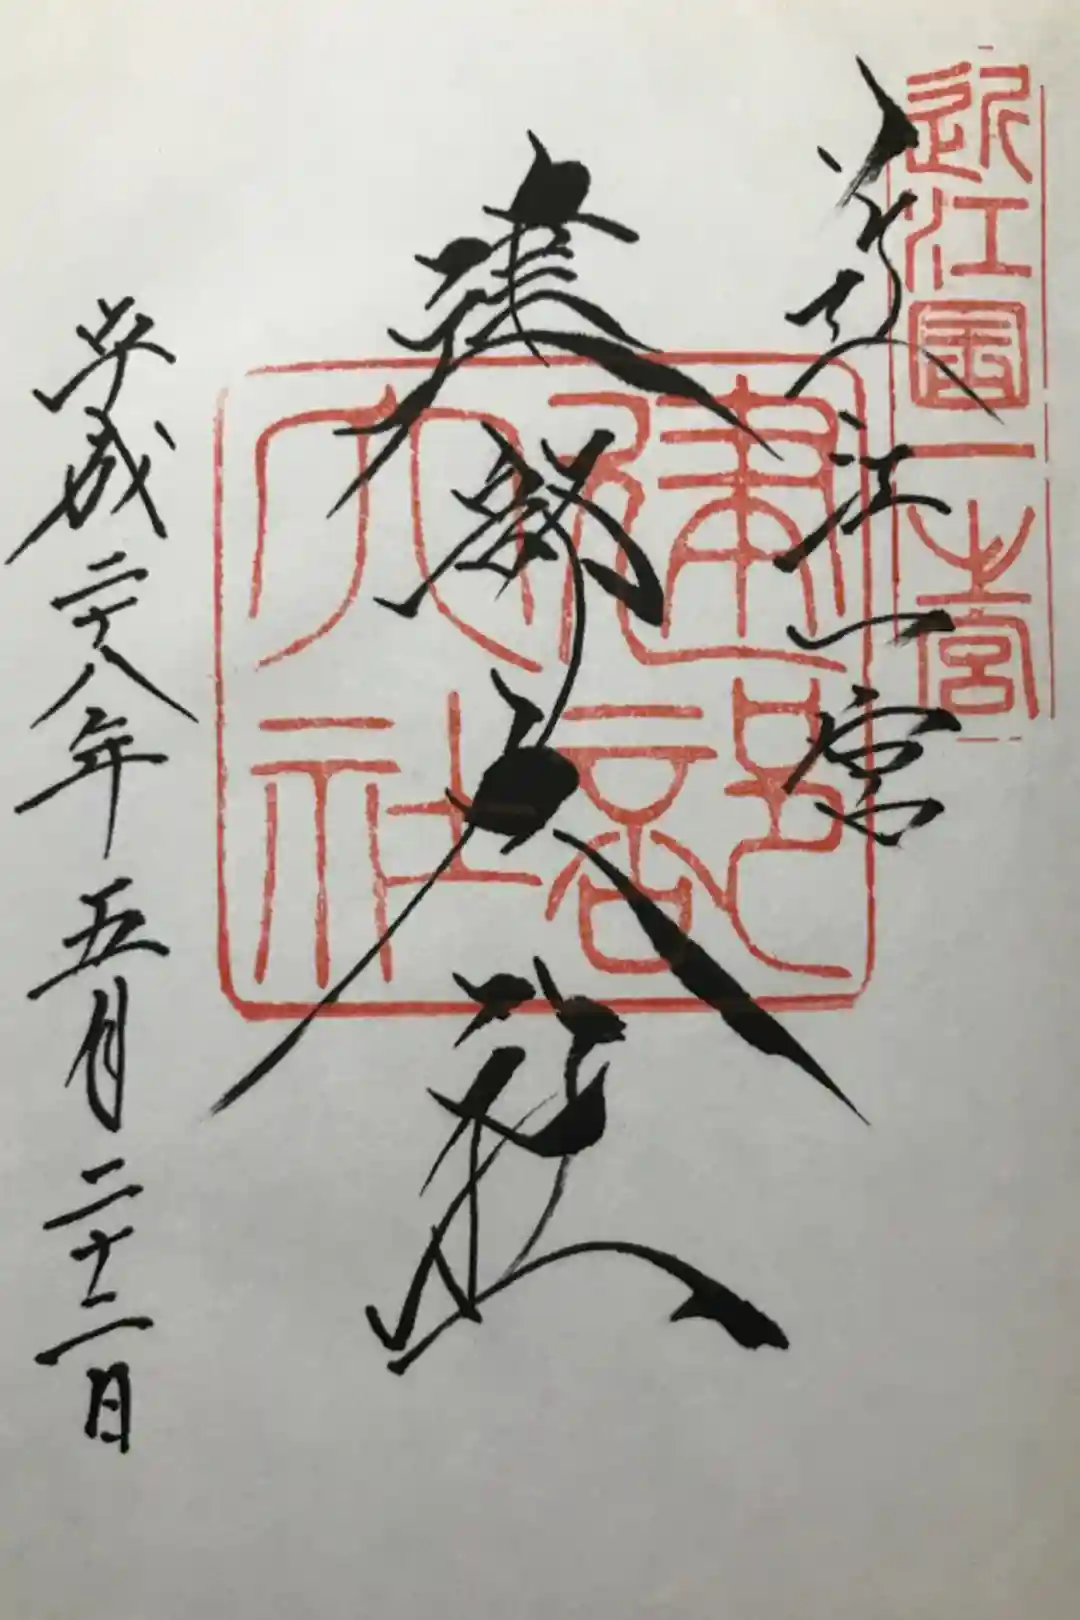 近江國一之宮
近江一宮
建部大社
建部大社
平成二十八年五月二十二日